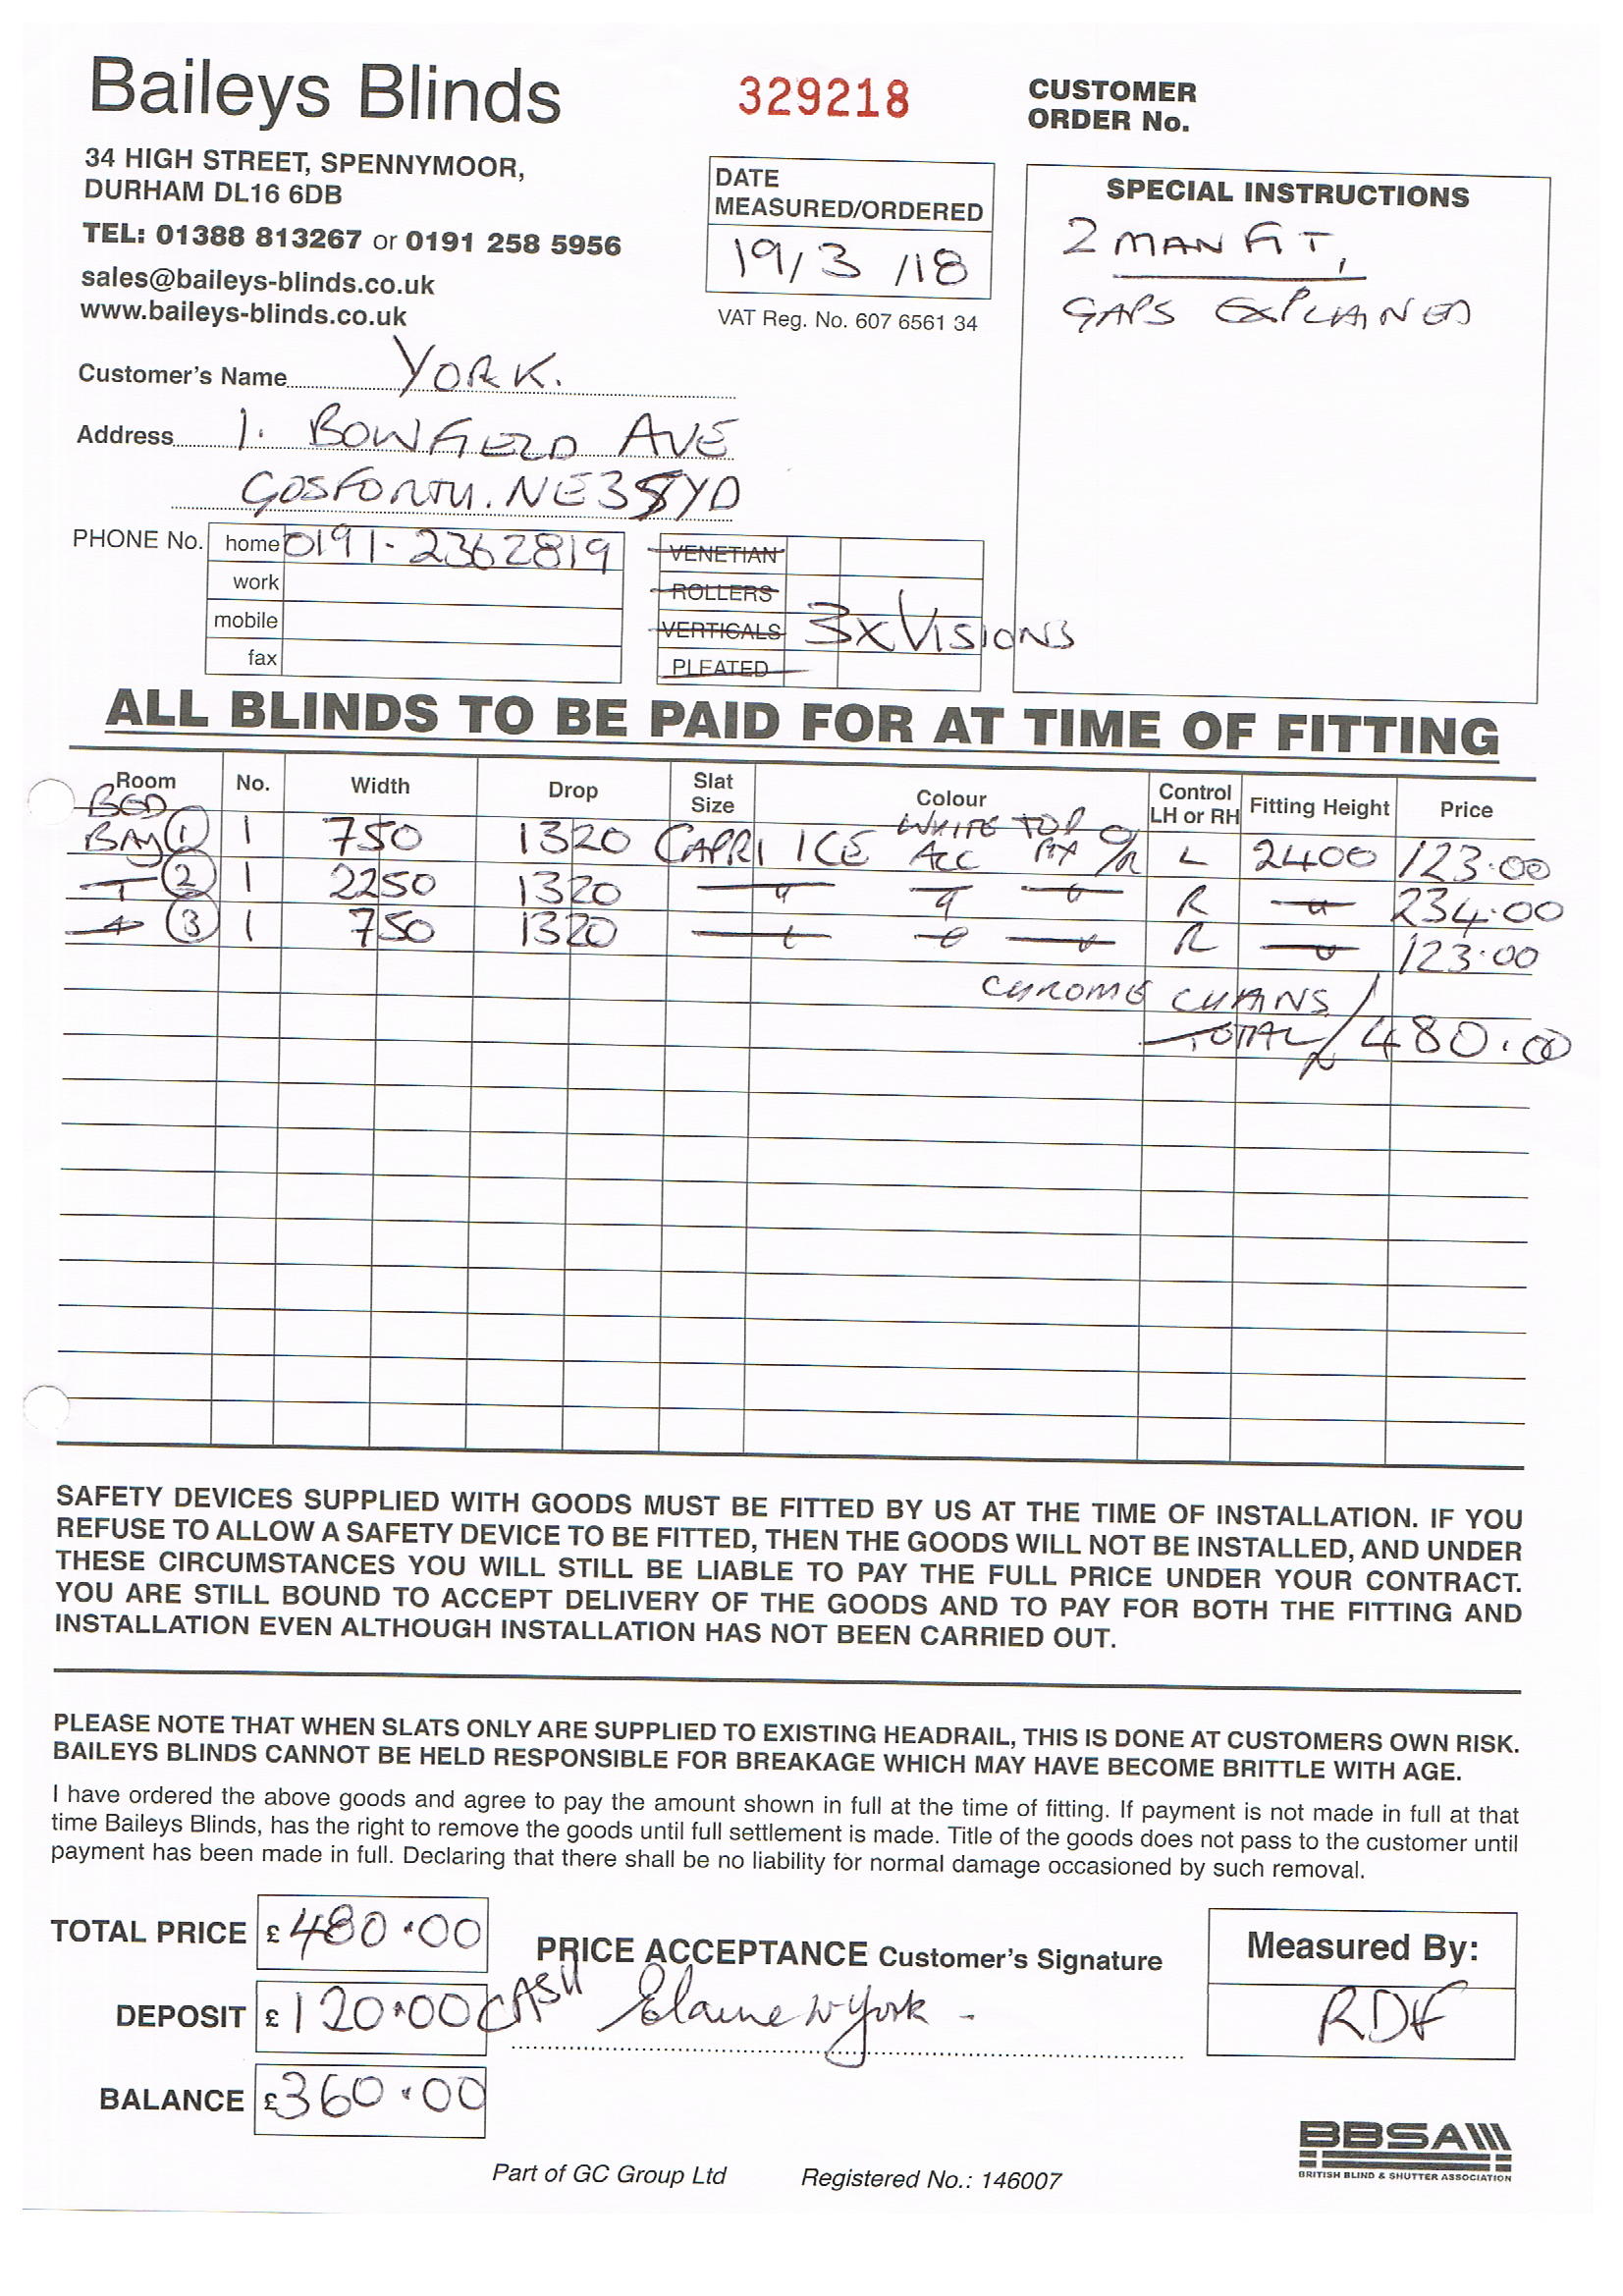 Baileys Blinds
329218
CUSTOMER
ORDER No.
34 HIGH STREET, SPENNYMOOR,
DURHAM DL16 6DB
TEL: 01388 813267 or 0191 258 5956
sales@baileys-blinds.co.uk
www.baileys-blinds.co.uk
DATE
MEASURED/ORDERED
19/3/18
VAT Reg. No. 607 6561 34
SPECIAL INSTRUCTIONS
2 MAN FIT,
GAPS EXPLAINED
Customer's Name YORK.
Address 1. BOWFIELD AVE
GOSFORTH. NE3 5YD
PHONE No. home 0191-2362819
work
mobile
fax
VENETIAN
ROLLERS
VERTICALS
PLEATED
3x VISIONS
ALL BLINDS TO BE PAID FOR AT TIME OF FITTING
Room No. Width Drop Slat Size Colour Control LH or RH Fitting Height Price
BED
BAY 1 1 750 1320 CAPRI ICE WHITE ACC TOP FIX O/R L 2400 123.00
" 2 1 2250 1320 " " " R " 234.00
" 3 1 750 1320 " " " R " 123.00
CHROME CHAINS
TOTAL 480.00
SAFETY DEVICES SUPPLIED WITH GOODS MUST BE FITTED BY US AT THE TIME OF INSTALLATION. IF YOU
REFUSE TO ALLOW A SAFETY DEVICE TO BE FITTED, THEN THE GOODS WILL NOT BE INSTALLED, AND UNDER
THESE CIRCUMSTANCES YOU WILL STILL BE LIABLE TO PAY THE FULL PRICE UNDER YOUR CONTRACT.
YOU ARE STILL BOUND TO ACCEPT DELIVERY OF THE GOODS AND TO PAY FOR BOTH THE FITTING AND
INSTALLATION EVEN ALTHOUGH INSTALLATION HAS NOT BEEN CARRIED OUT.
PLEASE NOTE THAT WHEN SLATS ONLY ARE SUPPLIED TO EXISTING HEADRAIL, THIS IS DONE AT CUSTOMERS OWN RISK.
BAILEYS BLINDS CANNOT BE HELD RESPONSIBLE FOR BREAKAGE WHICH MAY HAVE BECOME BRITTLE WITH AGE.
I have ordered the above goods and agree to pay the amount shown in full at the time of fitting. If payment is not made in full at that
time Baileys Blinds, has the right to remove the goods until full settlement is made. Title of the goods does not pass to the customer until
payment has been made in full. Declaring that there shall be no liability for normal damage occasioned by such removal.
TOTAL PRICE £480.00
PRICE ACCEPTANCE Customer's Signature
Measured By:
DEPOSIT £120.00 CASH
Elaine W York
RDF
BALANCE £360.00
Part of GC Group Ltd Registered No.: 146007
BBSA
BRITISH BLIND & SHUTTER ASSOCIATION